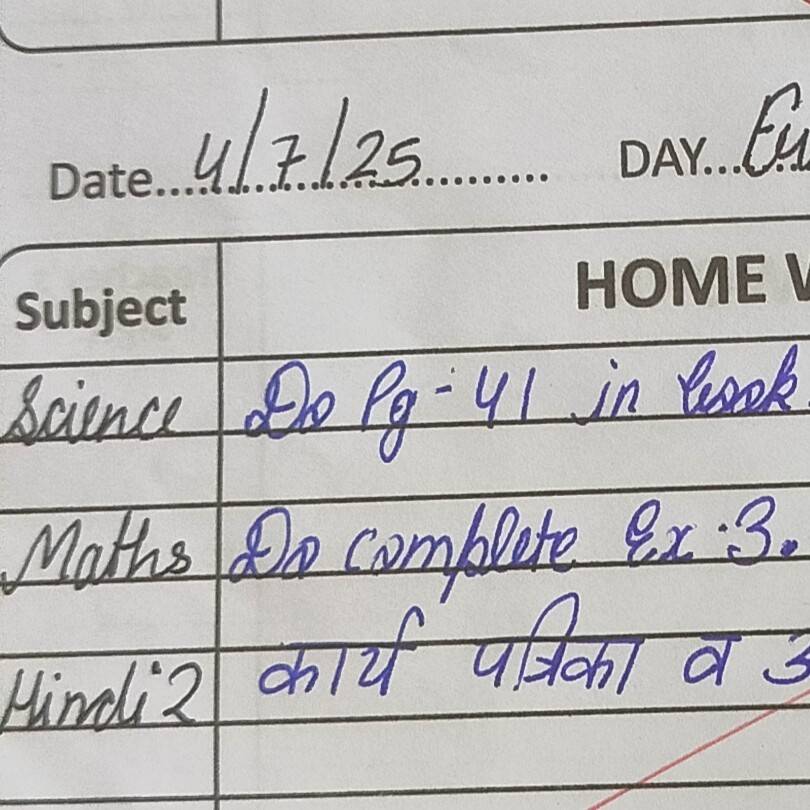 Date....4/7/25.......... DAY...
Subject HOME
Science Do Pg-41 in book.
Maths Do complete Ex.3.
Hindi 2 कार्य पत्रिका व